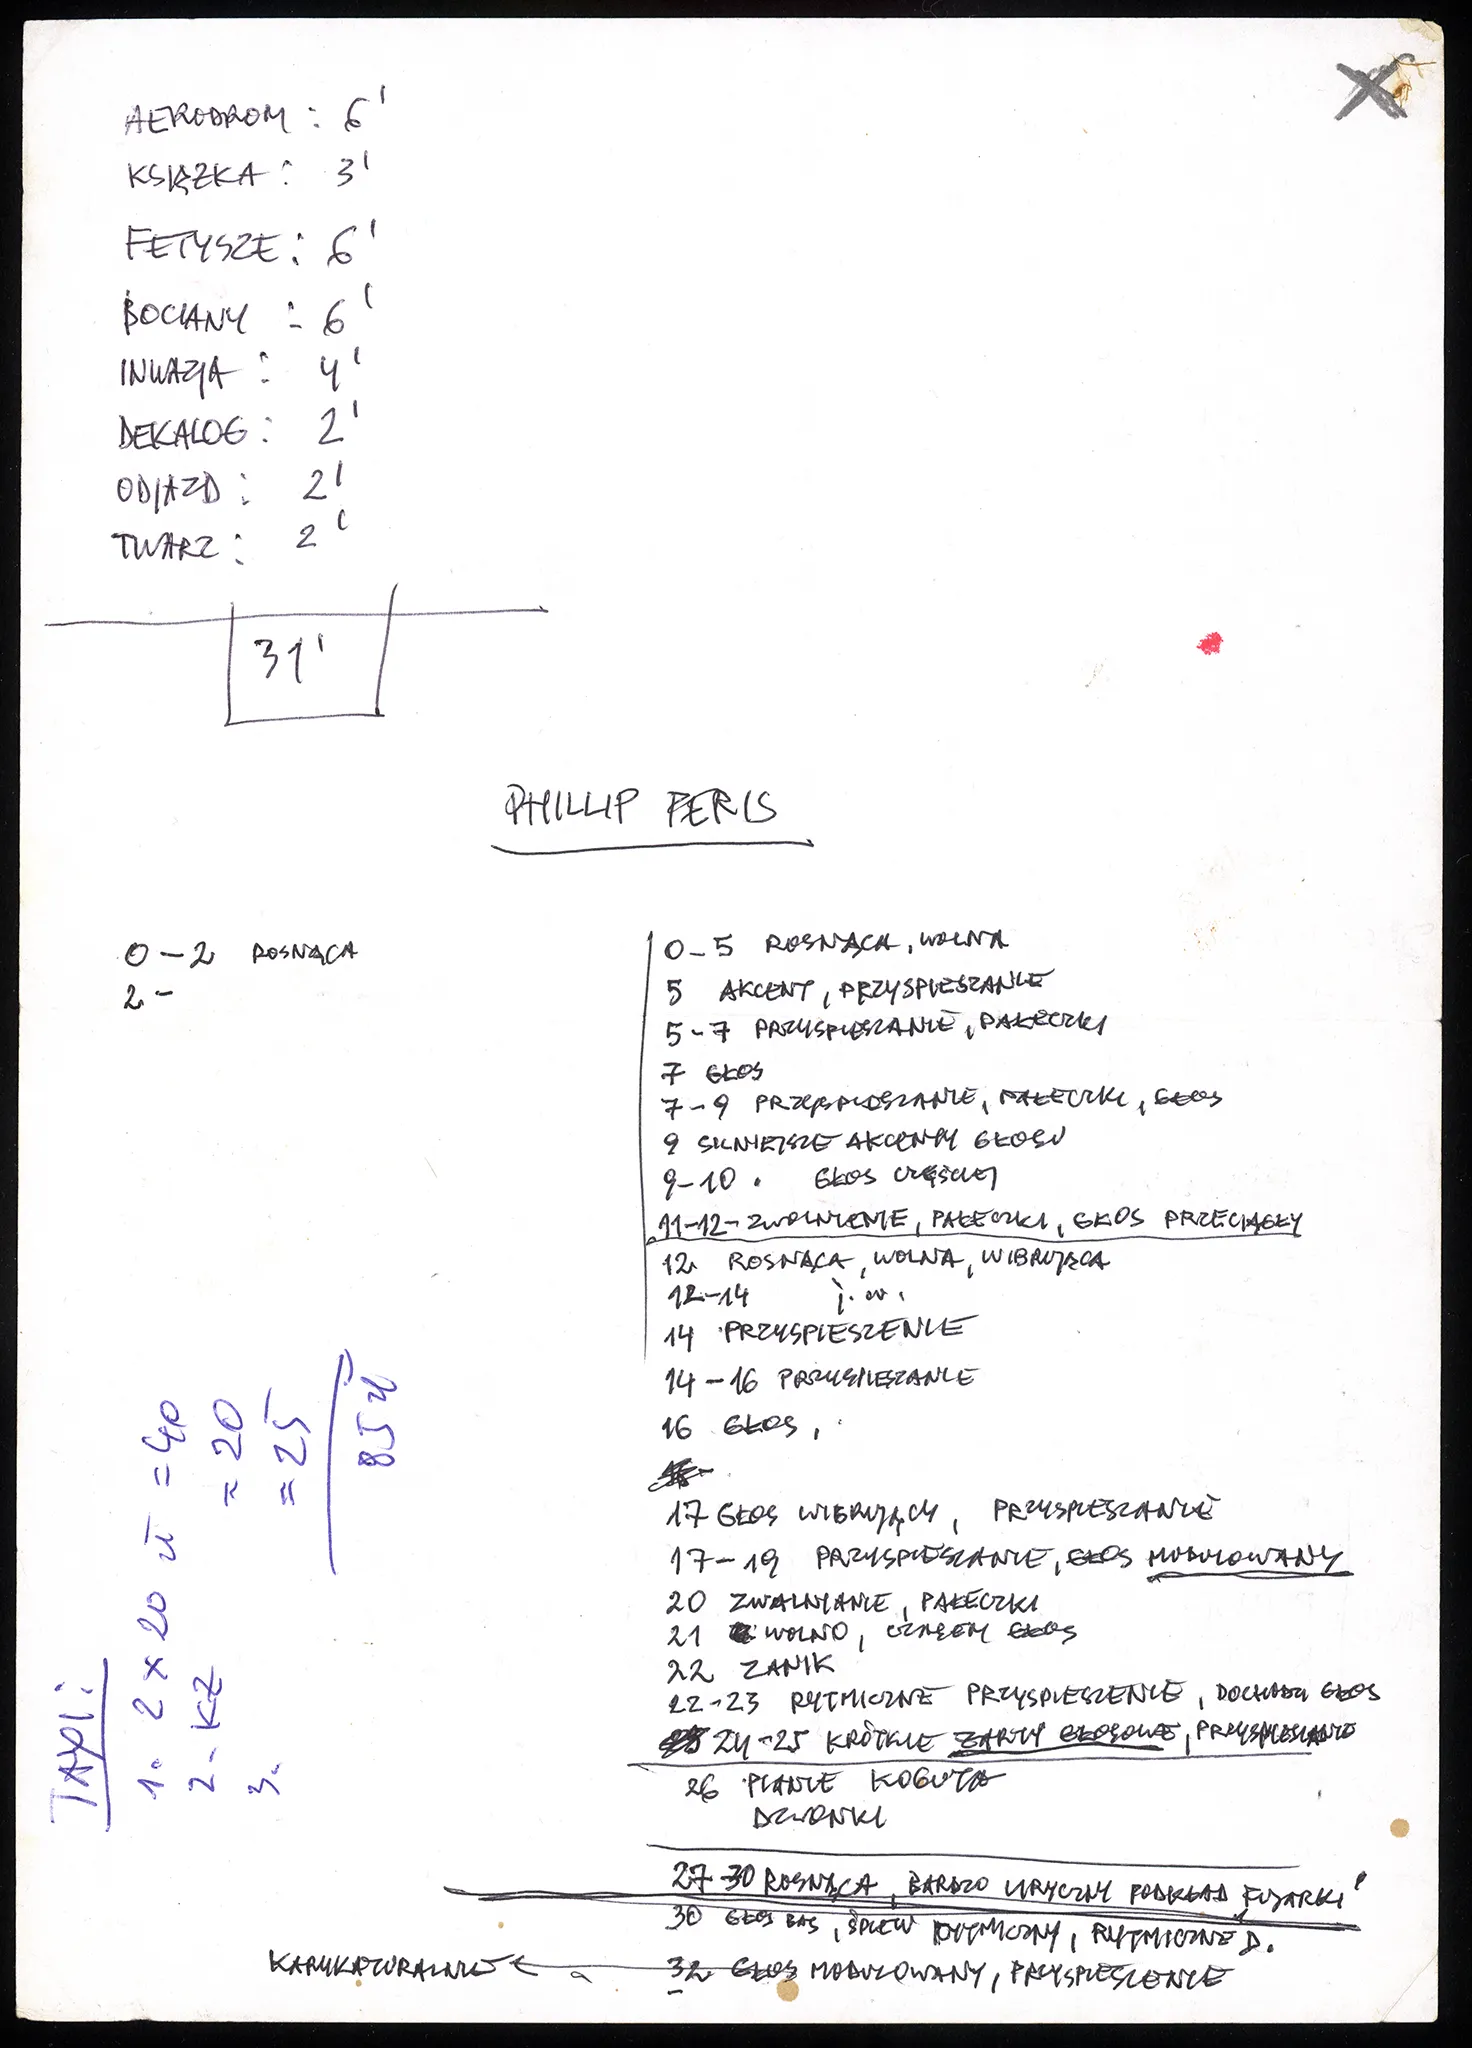 AERODROM : 6'
KSIĄŻKA : 3'
FETYSZE : 6'
BOCIANY : 6'
INWAZJA : 4'
DEKALOG : 2'
ODJAZD : 2'
TWARZ : 2'
31'
PHILLIP PERIS
0-2 ROSNĄCA
2-
0-5 ROSNĄCA, WOLNA
5 AKCENT, PRZYSPIESZANIE
5-7 PRZYSPIESZANIE, PAŁECZKI
7 GŁOS
7-9 PRZYSPIESZANIE, PAŁECZKI, GŁOS
9 SILNIEJSZE AKCENTY GŁOSU
9-10. GŁOS CZĘŚCIEJ
11-12- ZWOLNIENIE, PAŁECZKI, GŁOS PRZECIĄGŁY
12 ROSNĄCA, WOLNA, WIBRUJĄCA
12-14 j.w.
14 PRZYSPIESZENIE
14-16 PRZYSPIESZANIE
16 GŁOS,
17 GŁOS WIBRUJĄCY, PRZYSPIESZANIE
17-19 PRZYSPIESZANIE, GŁOS MODULOWANY
20 ZWALNIANIE, PAŁECZKI
21 WOLNO, CZASEM GŁOS
22 ZANIK
22-23 RYTMICZNE PRZYSPIESZENIE, DOCHODZI GŁOS
24-25 KRÓTKIE ŻARTY GŁOSOWE, PRZYSPIESZANIE
26 PIANIE KOGUTA
DZWONKI
27-30 ROSNĄCA, BARDZO LIRYCZNY PODKŁAD FUJARKI
30 GŁOS BAS, ŚPIEW RYTMICZNY, RYTMICZNE D.
32 GŁOS MODULOWANY, PRZYSPIESZENIE
KARYKATURALNIE
TAXI:
1. 2 x 20 zł = 40
2. KZ = 20
3. = 25
85 zł